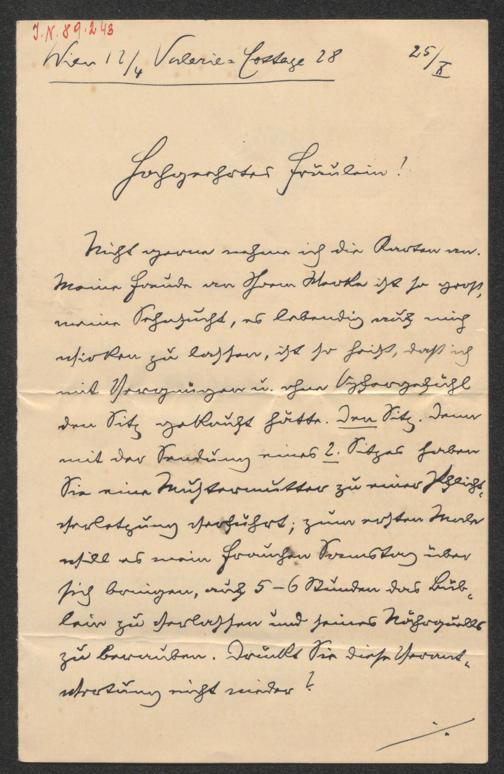 J.N. 89.243
Wien 12/4 Valerie=Cottage 28 25/X
Hochgeehrtes Fräulein!
Nicht gerne nehme ich die Karten an.
Meine Freude an Ihrem Werke ist so groß,
meine Sehnsucht, es lebendig auf mich
wirken zu lassen, ist so heiß, daß ich
mit Vergnügen u. ohne Opfergefühl
den Sitz gekauft hätte. Den Sitz. Denn
mit der Sendung eines 2. Sitzes haben
Sie eine Mustermutter zu einer Pflicht-
verletzung verführt; zum ersten Male
will es mein Frauchen Samstag über
sich bringen, auf 5-6 Stunden das Büb-
lein zu verlassen und seines Nährquells
zu berauben. Drückt Sie diese Verant-
wortung nicht nieder?
./.